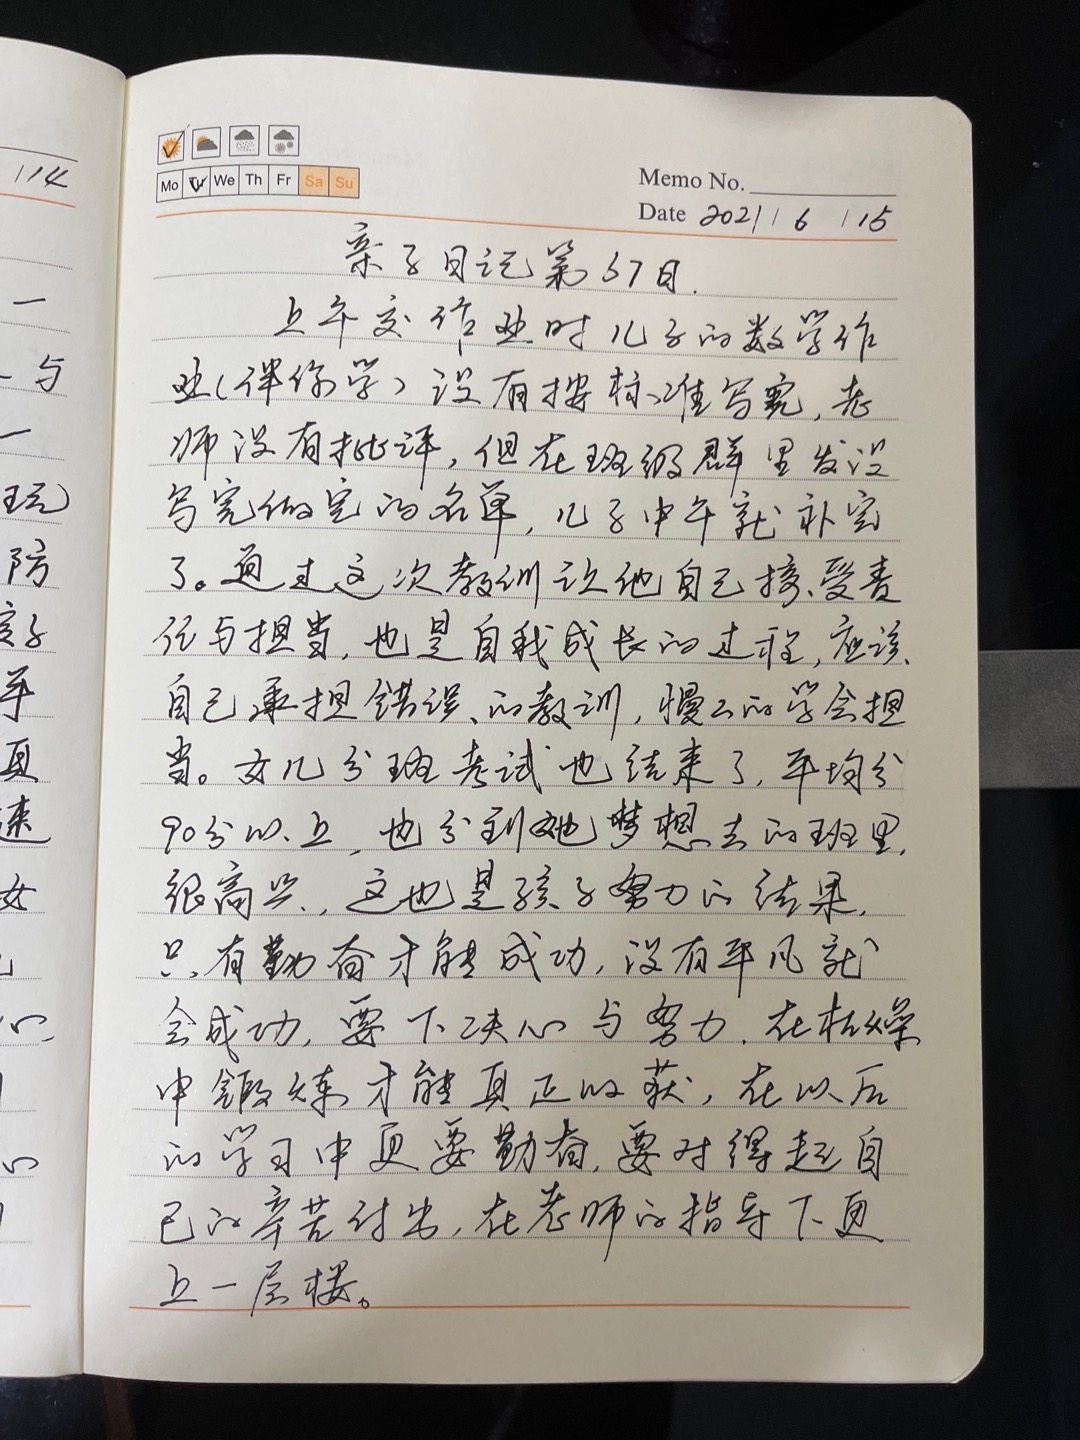 114
一
与
一
玩
防
孩子
真
速
女
心
心
Mo Tu We Th Fr Sa Su
Memo No.
Date 2021 / 6 / 15
亲子日记第67日.
上午交作业时儿子的数学作
业(伴你学)没有按标准写完,老
师没有批评,但在班级群里发没
写完做完的名单,儿子中午就补完
了。通过这次教训让他自己接受责
任与担当,也是自我成长的过程,应该
自己承担错误的教训,慢々的学会担
当。女儿分班考试也结束了,平均分
90分以上,也分到她梦想去的班里,
很高兴,这也是孩子努力的结果,
只有勤奋才能成功,没有平凡就
会成功,要下决心与努力.在枯燥
中锻炼才能真正的获,在以后
的学习中更要勤奋,要对得起自
己的辛苦付出,在老师的指导下更
上一层楼。